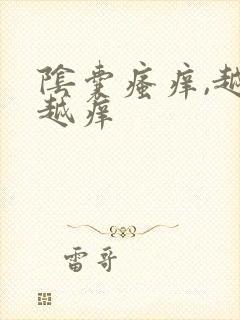 陰囊瘙痒,越
越痒
雷哥